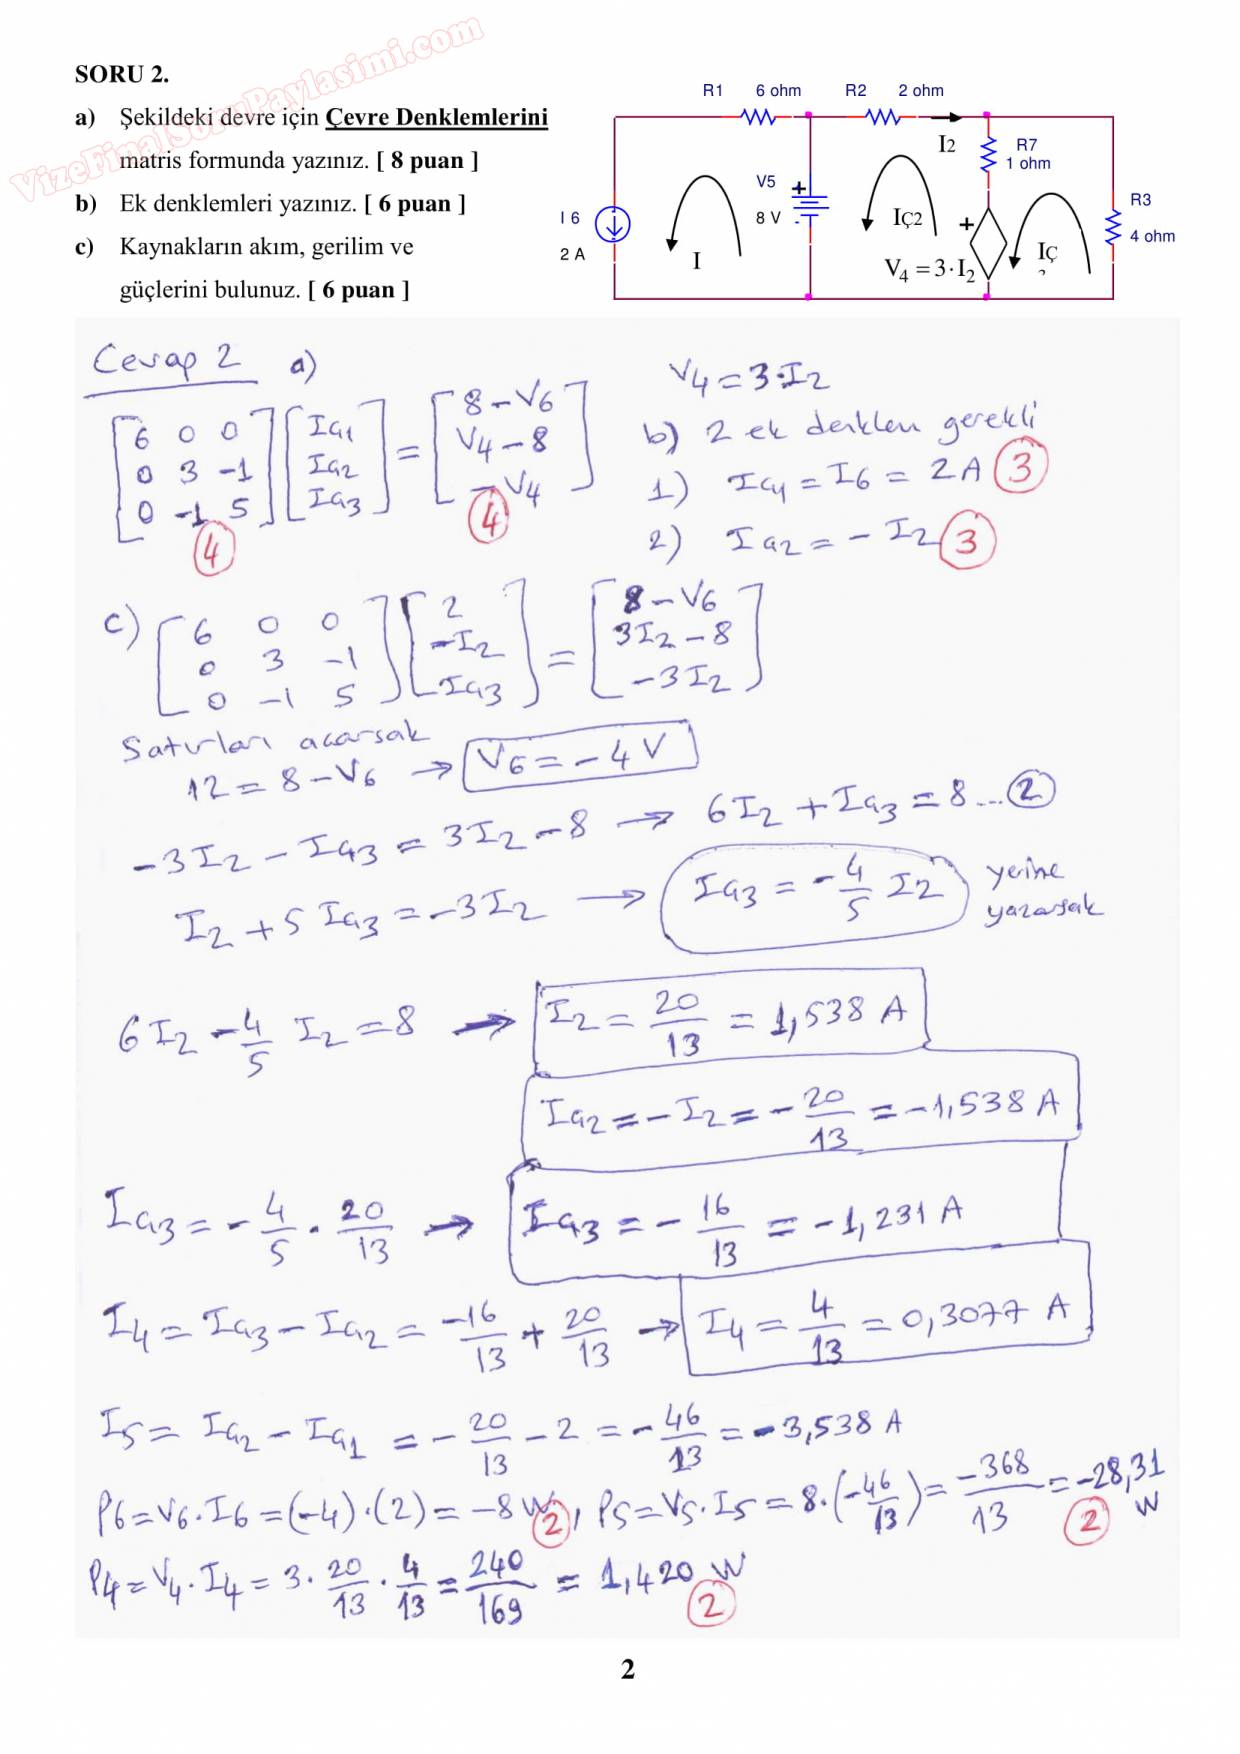 VizeFinalSoruPaylasimi.com
SORU 2.
a) Şekildeki devre için Çevre Denklemlerini
matris formunda yazınız. [ 8 puan ]
b) Ek denklemleri yazınız. [ 6 puan ]
c) Kaynakların akım, gerilim ve
güçlerini bulunuz. [ 6 puan ]
R1 6 ohm R2 2 ohm
I2
R7
1 ohm
V5
8 V
R3
4 ohm
I 6
2 A
I
IÇ2
IÇ
V4 = 3·I2
Cevap 2 a)
[6 0 0; 0 3 -1; 0 -1 5] [Iç1; Iç2; Iç3] = [8-V6; V4-8; -V4]
4 4
V4 = 3·I2
b) 2 ek denklem gerekli
1) Iç1 = I6 = 2A 3
2) Iç2 = -I2 3
c) [6 0 0; 0 3 -1; 0 -1 5] [2; -I2; Iç3] = [8-V6; 3I2-8; -3I2]
Satırları açarsak
12 = 8-V6 → V6 = -4 V
-3I2 - Iç3 = 3I2 - 8 → 6I2 + Iç3 = 8 ... 2
I2 + 5 Iç3 = -3I2 → Iç3 = -4/5 I2 yerine
yazarsak
6I2 - 4/5 I2 = 8 → I2 = 20/13 = 1,538 A
Iç2 = -I2 = -20/13 = -1,538 A
Iç3 = -4/5 · 20/13 → Iç3 = -16/13 = -1,231 A
I4 = Iç3 - Iç2 = -16/13 + 20/13 → I4 = 4/13 = 0,3077 A
I5 = Iç2 - Iç1 = -20/13 - 2 = -46/13 = -3,538 A
P6 = V6·I6 = (-4)·(2) = -8 W 2, P5 = V5·I5 = 8·(-46/13) = -368/13 = -28,31 W 2
P4 = V4·I4 = 3·20/13·4/13 = 240/169 = 1,420 W 2
2